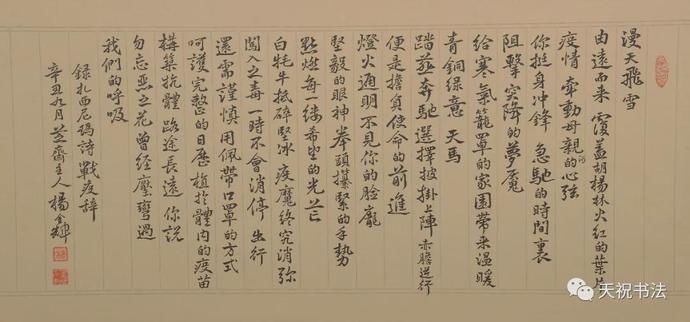 漫天飛雪
由遠而来 覆盖胡楊林火红的葉片
疫情 牵動母親的心弦
你挺身冲鋒 急馳的時間裏
阻擊突降的夢魘
给寒氣籠罩的家園带来温暖
青銅緑意 天馬
踏燕奔馳選擇披掛上陣 赤膽逆行
便是擔負使命的前進
燈火通明不見你的臉龐
堅毅的眼神 拳頭攥緊的手勢
點燃每一缕希望的光芒
白牦牛抵碎堅冰疫魔终究消弥
闖入之毒一時不會消停 出行
還需謹慎 用佩帶口罩的方式
呵護完整的日歷 植於體内的疫苗
構築抗體 路途長遠 你説
勿忘惡之花曾經壓彎過
我們的呼吸
録扎西尼瑪詩 戰疫辞
辛丑九月 芝齋主人 楊金輝
天祝书法